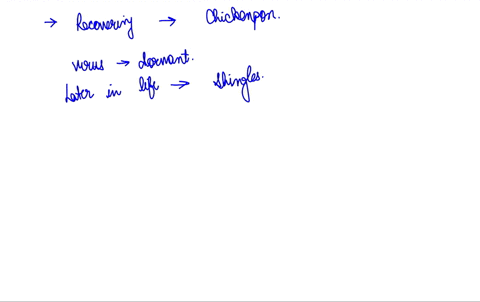 → Recovering → Chickenpox.
virus → dormant.
Later in life → Shingles.